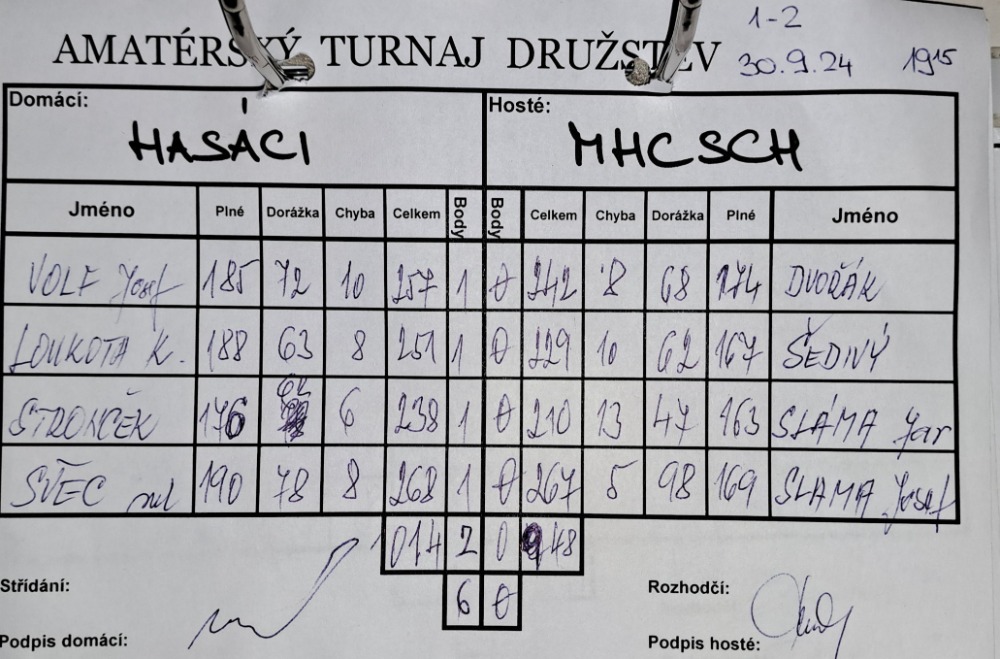 1-2
AMATÉRSKÝ TURNAJ DRUŽSTEV 30.9.24 19¹⁵
Domácí: Hosté:
HASÁCI MHCSCH
Jméno Plné Dorážka Chyba Celkem Body Body Celkem Chyba Dorážka Plné Jméno
VOLF Josef 185 72 10 257 1 0 242 8 68 174 DVOŘÁK
LOUKOTA K. 188 63 8 251 1 0 229 10 62 167 ŠEDIVÝ
176 62 6 238 1 0 210 13 47 163 SLÁMA Jar
ŠVEC ml 190 78 8 268 1 0 267 5 98 169 SLÁMA Josef
1014 2 0 948
Střídání: 6 0 Rozhodčí:
Podpis domácí: Podpis hosté: